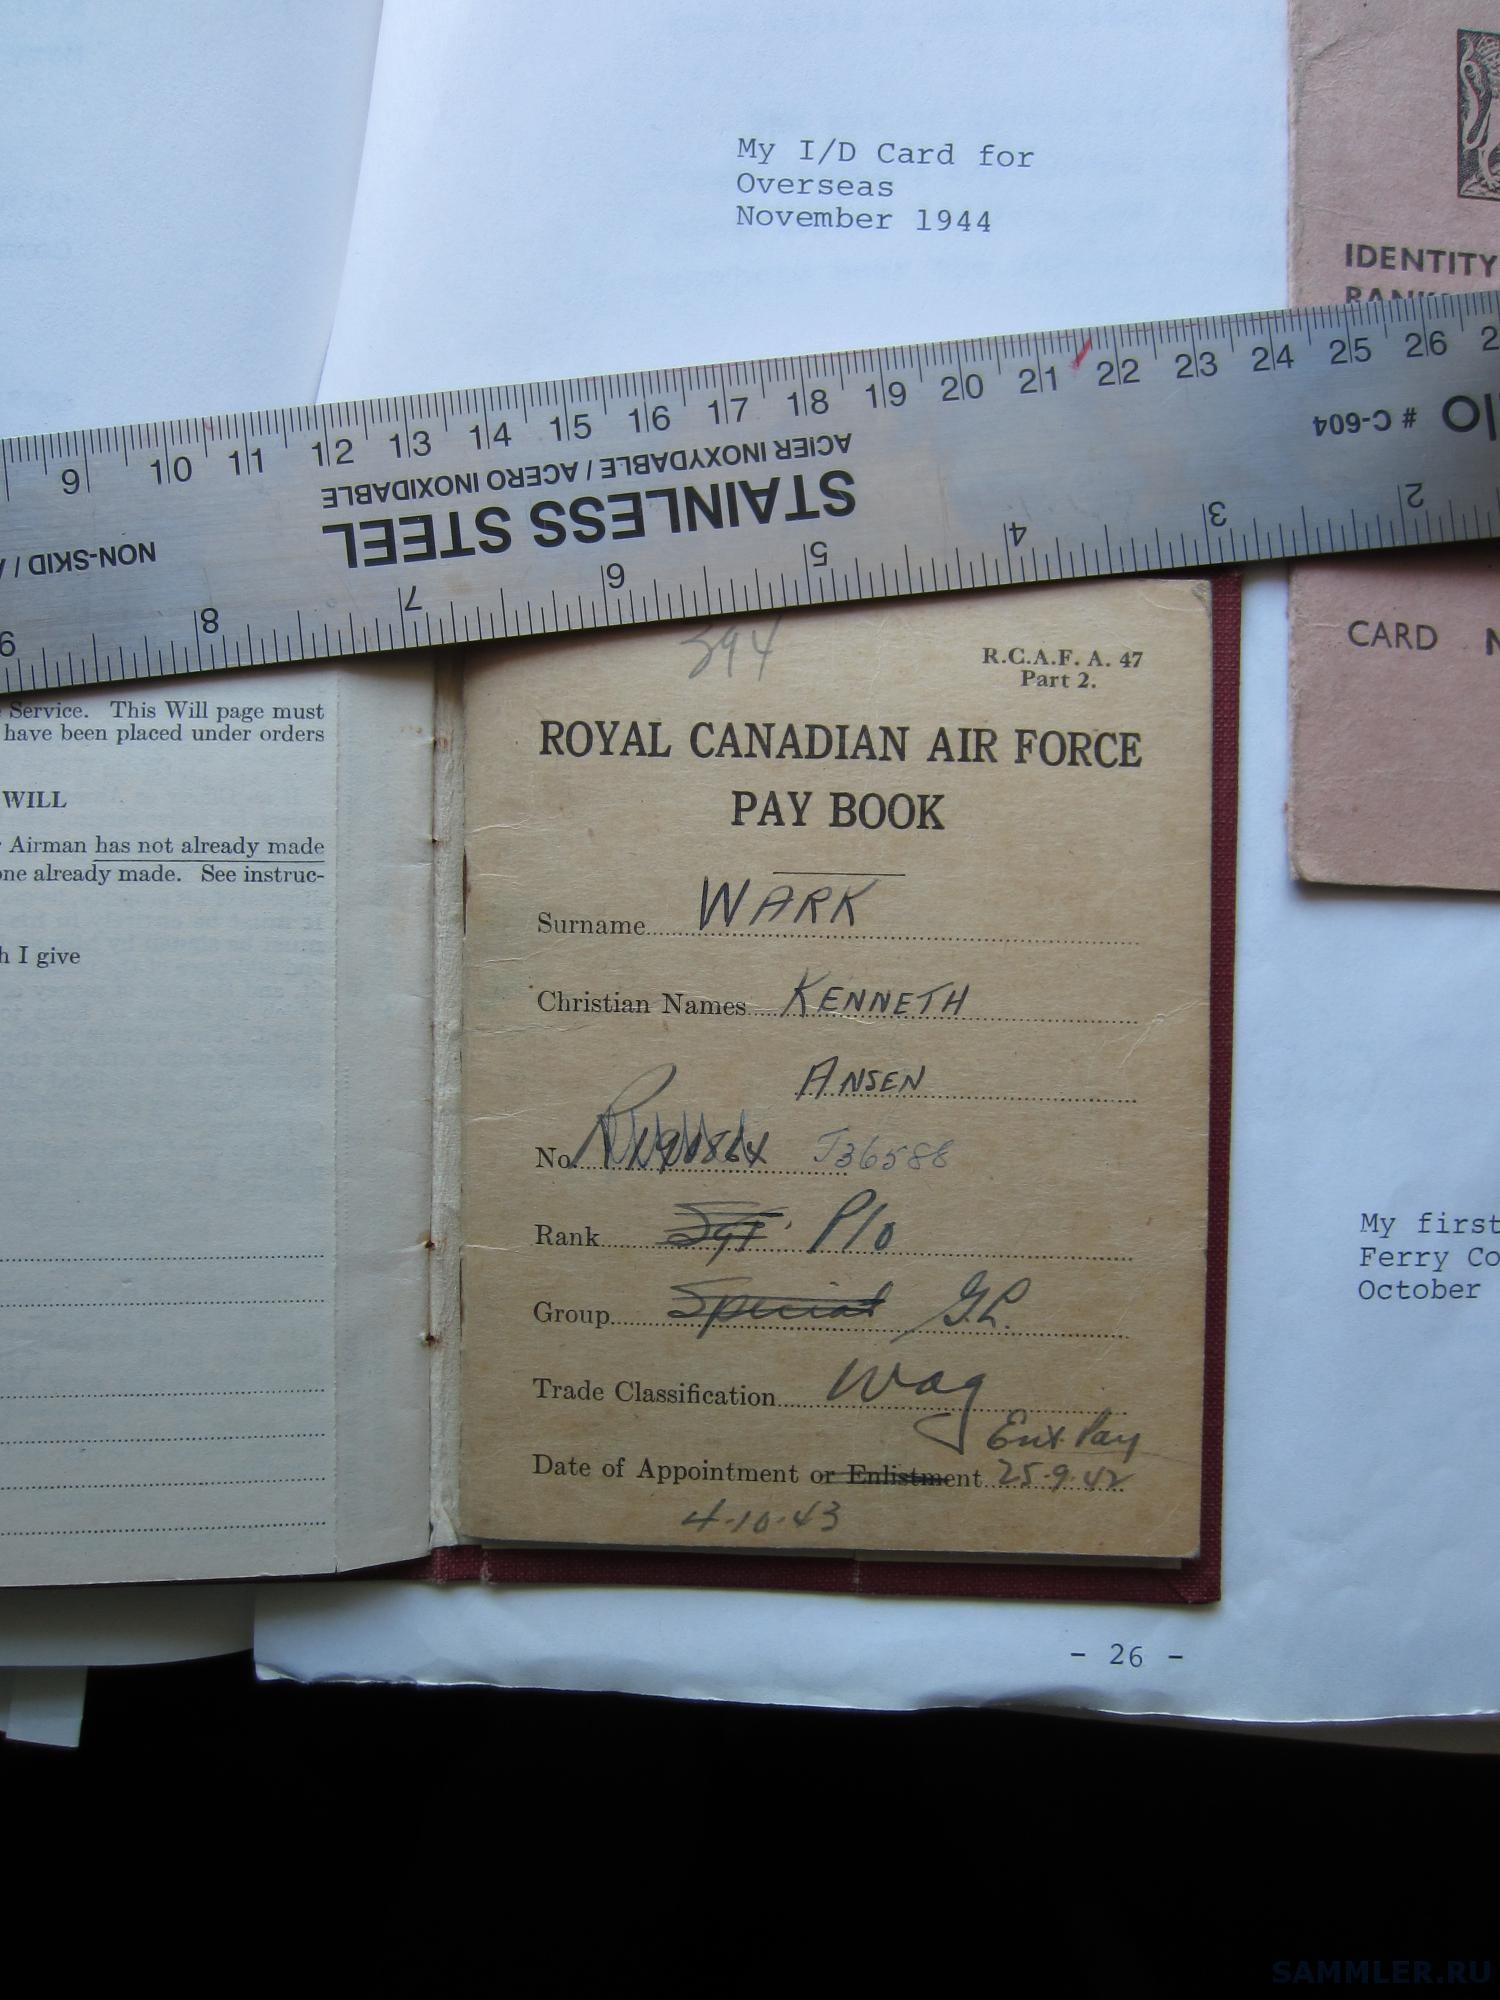 My I/D Card for
Overseas
November 1944
IDENTITY
CARD
9 10 11 12 13 14 15 16 17 18 19 20 21 22 23 24 25 26 2
# C-604
ACIER INOXYDABLE / ACERO INOXIDABLE
STAINLESS STEEL
NON-SKID /
9 8 7 6 5 4 3 2
Service. This Will page must
have been placed under orders
WILL
Airman has not already made
one already made. See instruc-
h I give
394
R.C.A.F. A. 47
Part 2.
ROYAL CANADIAN AIR FORCE
PAY BOOK
Surname WARK
Christian Names KENNETH
ANSEN
No. J36588
Rank Sgt P/O
Group Special G.L.
Trade Classification Wag
Ent. Pay
Date of Appointment or Enlistment 25-9-42
4-10-43
My first
Ferry Co
October
- 26 -
SAMMLER.RU